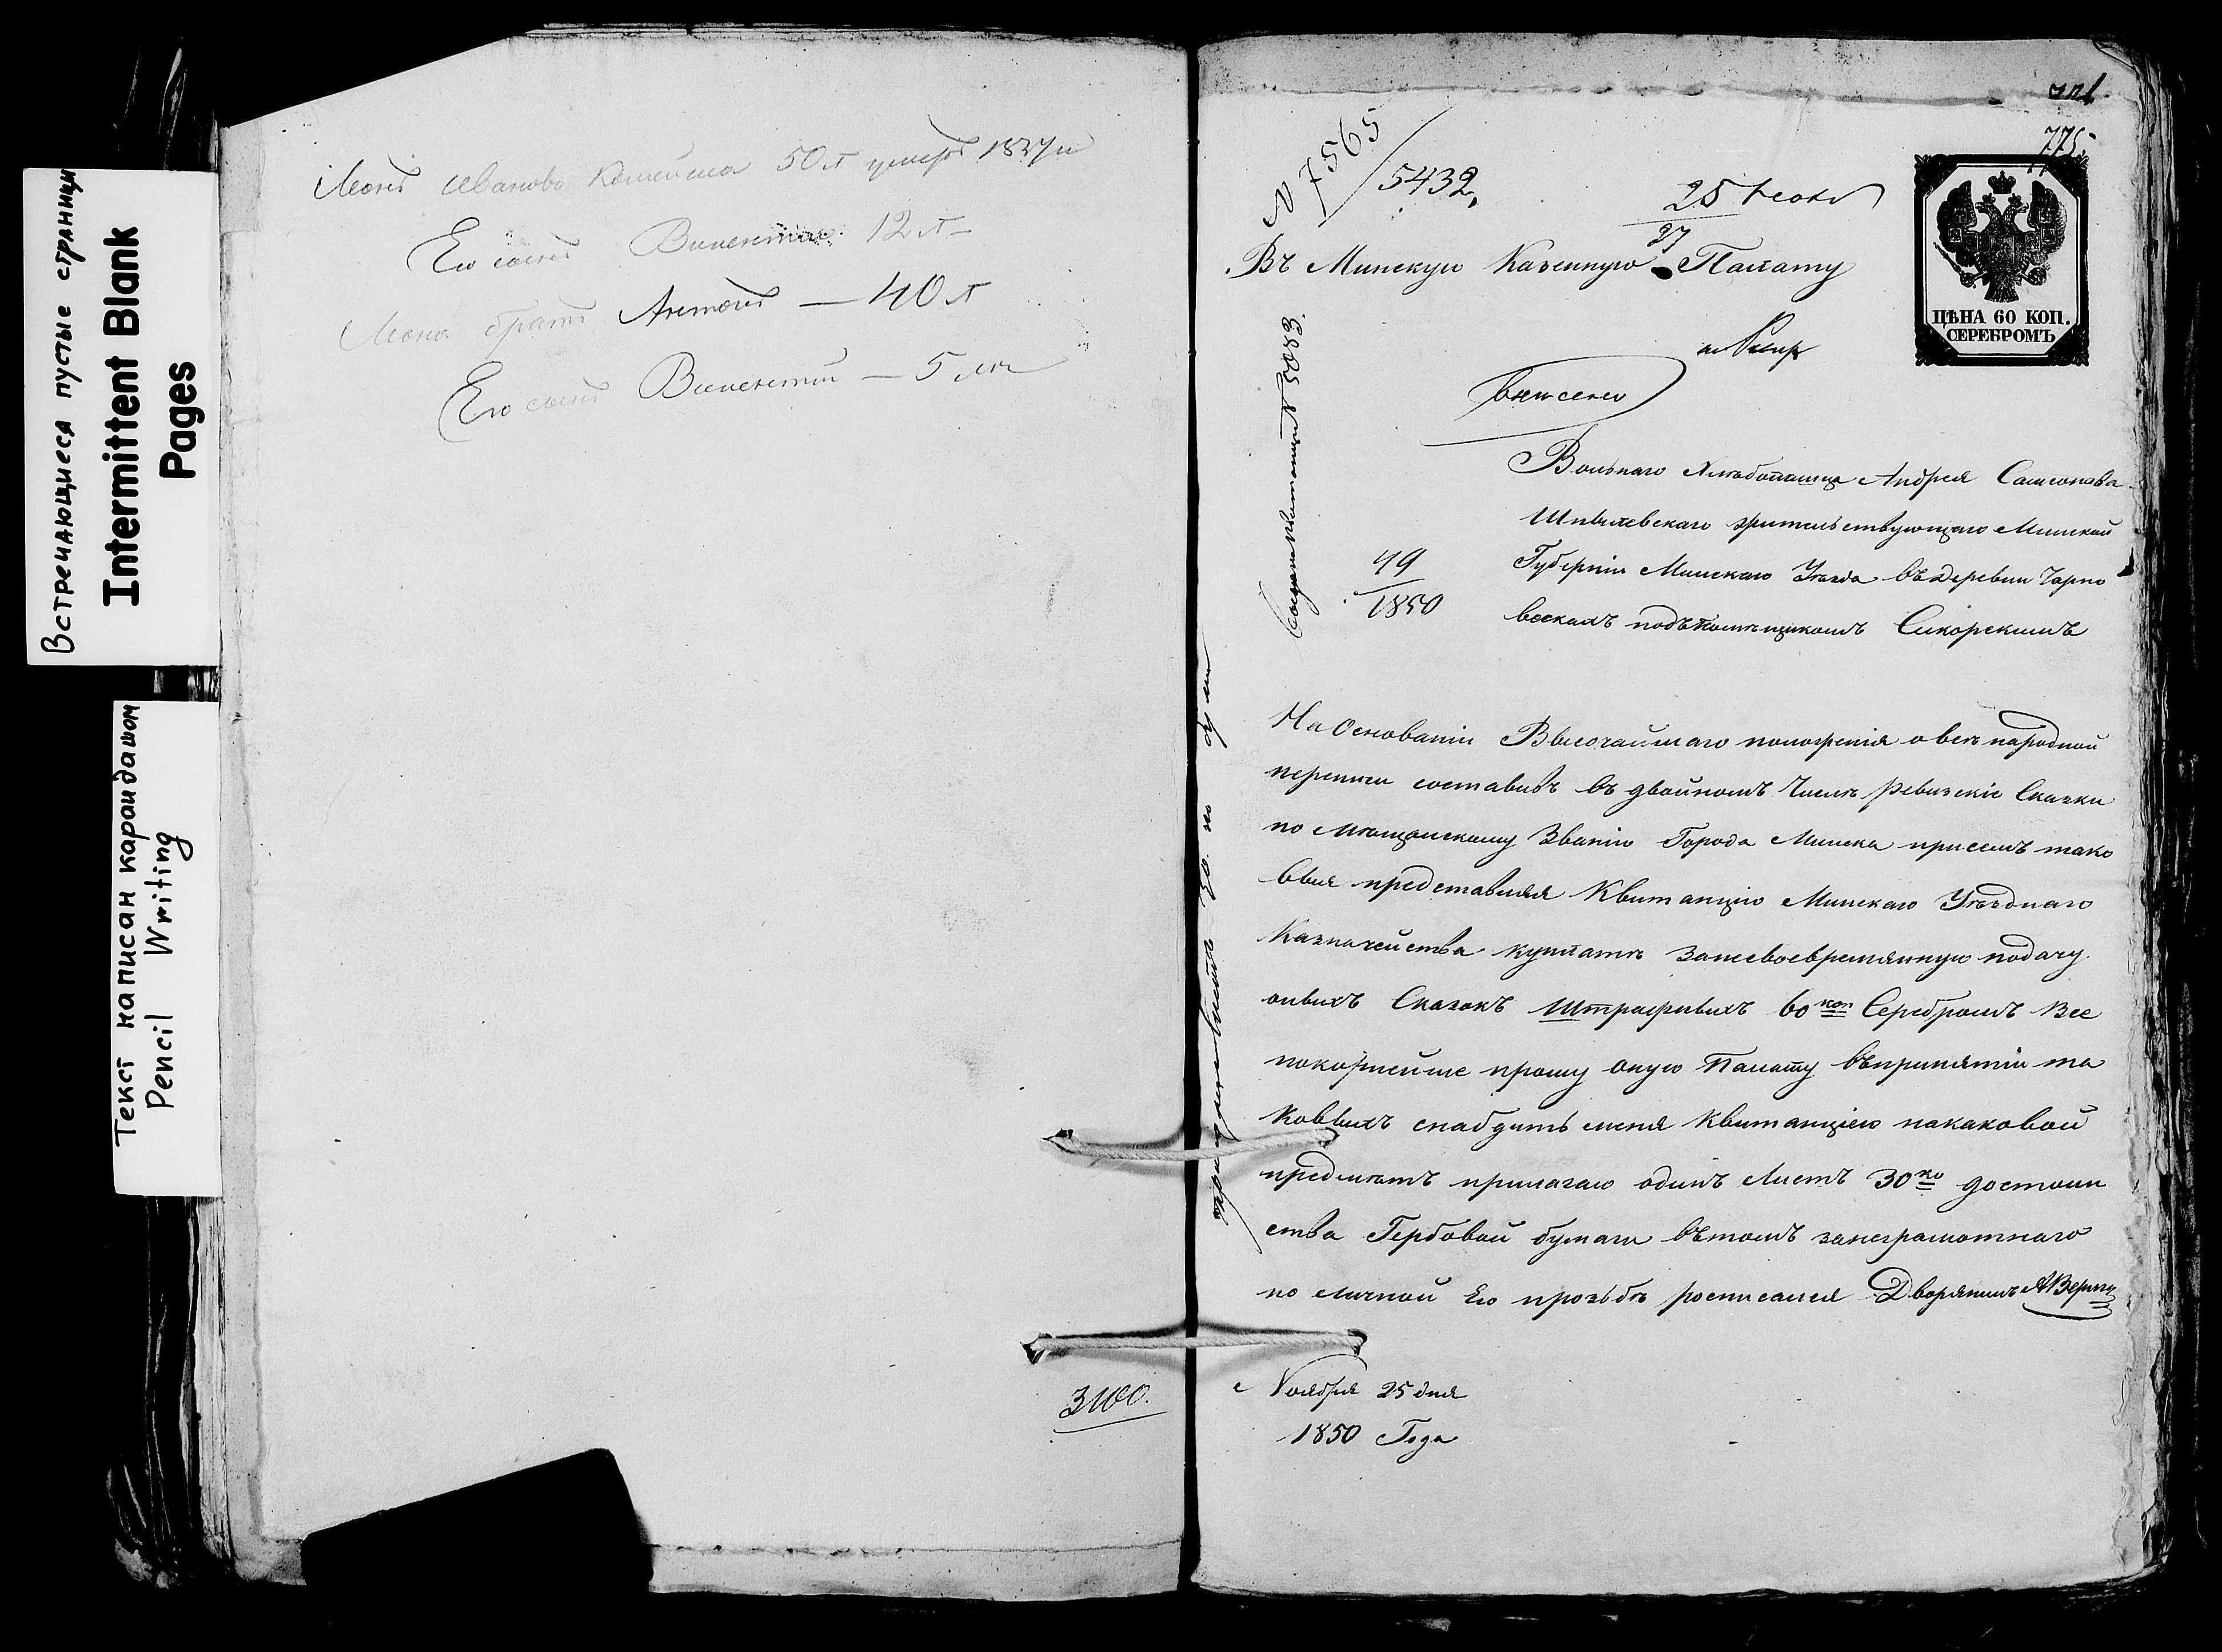 Встречающиеся пустые страницы
Intermittent Blank
Pages
Текст написан карандашом
Pencil Writing
Леонъ Иванов 50 л умеръ 1837
Его сынъ Викентий 12 л
Леона братъ Антонъ — 40 л
Его сынъ Викентий — 5 л
3100.
775
N 7565
5432
25 Нояб
27
Въ Минскую Казенную Палату
ЦѢНА 60 КОП.
СЕРЕБРОМЪ
N 5083.
49
1850
Вольнаго Хлѣбопашца Андрея Самсонова
жительствующаго Минской
Губерніи Минскаго Уѣзда въ деревни Чарно
подъ помѣщикомъ Сикорскимъ
На Основаніи Высочайшаго положенія о все народной
переписи составивъ въ двойномъ Числѣ Ревизскіе Сказки
по Мѣщанскому Званію Города Минска при семъ тако
выя представляя Квитанцію Минскаго Уѣзднаго
Казначейства подачу
оныхъ Сказокъ Штрафныхъ 60 коп Серебромъ Все
покорнейше прошу оную Палату въ принятіи та
ковыхъ снабдить меня Квитанціею на каковой
предметъ прилагаю одинъ Листъ 30 ко достоин
ства Гербовой бумаги въ томъ за неграмотнаго
по личной Его прозьбѣ росписался Дворянинъ
Ноября 25 дня
1850 Года